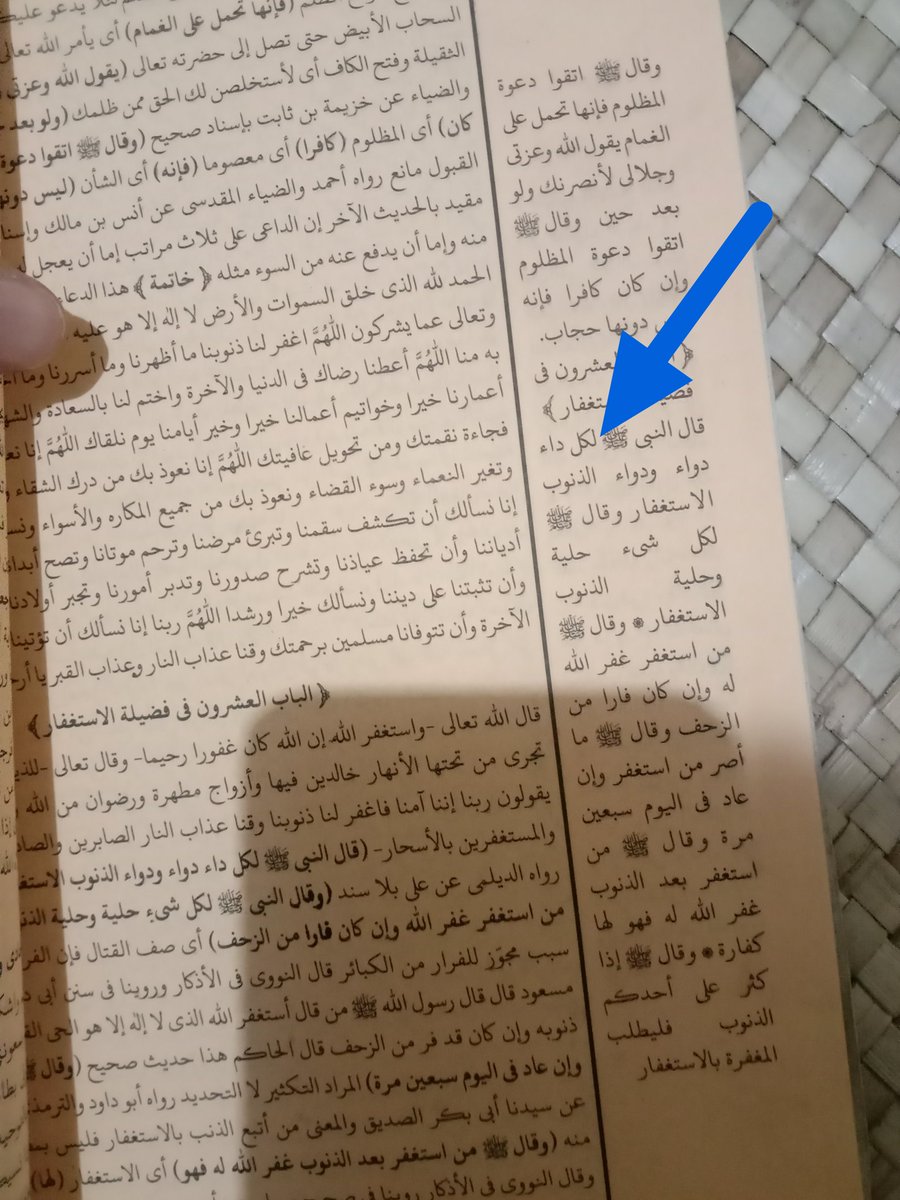 (فإنها تحمل على الغمام) أى يأمر الله تعالى
السحاب الأبيض حتى تصل إلى حضرته تعالى (يقول الله وعزتى
الثقيلة وفتح الكاف أى لأستخلصن لك الحق ممن ظلمك (ولو بعد
والضياء عن خزيمة بن ثابت بإسناد صحيح (وقال ﷺ اتقوا دعوة
كان) أى المظلوم (كافرا) أى معصوما (فإنه) أى الشأن (ليس دونها
القبول مانع رواه أحمد والضياء المقدسى عن أنس بن مالك
مقيد بالحديث الآخر إن الداعى على ثلاث مراتب إما أن يعجل
منه وإما أن يدفع عنه من السوء مثله ﴿ خاتمة ﴾ هذا الدعاء
الحمد لله الذى خلق السموات والأرض لا إله إلا هو عليه
وتعالى عما يشركون اللّٰهُمَّ اغفر لنا ذنوبنا ما أظهرنا وما أسررنا وما
به منا اللّٰهُمَّ أعطنا رضاك فى الدنيا والآخرة واختم لنا بالسعادة
أعمارنا خيرا وخواتيم أعمالنا خيرا وخير أيامنا يوم نلقاك اللّٰهُمَّ إنا
فجاءة نقمتك ومن تحويل عافيتك اللّٰهُمَّ إنا نعوذ بك من درك الشقاء
وتغير النعماء وسوء القضاء ونعوذ بك من جميع المكاره والأسواء
إنا نسألك أن تكشف سقمنا وتبرئ مرضنا وترحم موتانا وتصح
أدياننا وأن تحفظ عياذنا وتشرح صدورنا وتدبر أمورنا وتجبر أولادنا
وأن تثبتنا على ديننا ونسألك خيرا ورشدا اللّٰهُمَّ ربنا إنا نسألك أن تؤتينا
الآخرة وأن تتوفانا مسلمين برحمتك وقنا عذاب النار وعذاب القبر يا
﴿ الباب العشرون فى فضيلة الاستغفار﴾
قال الله تعالى -واستغفر الله إن الله كان غفورا رحيما- وقال تعالى
تجرى من تحتها الأنهار خالدين فيها وأزواج مطهرة ورضوان من الله
يقولون ربنا إننا آمنا فاغفر لنا ذنوبنا وقنا عذاب النار الصابرين
والمستغفرين بالأسحار- (قال النبى ﷺ لكل داء دواء ودواء الذنوب
رواه الديلمى عن على بلا سند (وقال النبى ﷺ لكل شىء حلية وحلية
من استغفر غفر الله وإن كان فارا من الزحف) أى صف القتال فإن
سبب مجوّز للفرار من الكبائر قال النووى فى الأذكار وروينا فى سنن أبى
مسعود قال قال رسول الله ﷺ من قال أستغفر الله الذى لا إله إلا هو الحى
ذنوبه وإن كان قد فر من الزحف قال الحاكم هذا حديث صحيح (وقال
وإن عاد فى اليوم سبعين مرة) المراد التكثير لا التحديد رواه أبو داود
عن سيدنا أبى بكر الصديق والمعنى من أتبع الذنب بالاستغفار فليس
منه (وقال ﷺ من استغفر بعد الذنوب غفر الله له فهو) أى الاستغفار (لها)
وقال النووى فى الأذكار روينا فى
وقال ﷺ اتقوا دعوة
المظلوم فإنها تحمل على
الغمام يقول الله وعزتى
وجلالى لأنصرنك ولو
بعد حين وقال ﷺ
اتقوا دعوة المظلوم
وإن كان كافرا فإنه
دونها حجاب.
العشرون فى
قال النبى ﷺ لكل داء
دواء ودواء الذنوب
الاستغفار وقال ﷺ
لكل شىء حلية
وحلية الذنوب
الاستغفار * وقال ﷺ
من استغفر غفر الله
له وإن كان فارا من
الزحف وقال ﷺ ما
أصر من استغفر وإن
عاد فى اليوم سبعين
مرة وقال ﷺ من
استغفر بعد الذنوب
غفر الله له فهو لها
كفارة * وقال ﷺ إذا
كثر على أحدكم
الذنوب فليطلب
المغفرة بالاستغفار